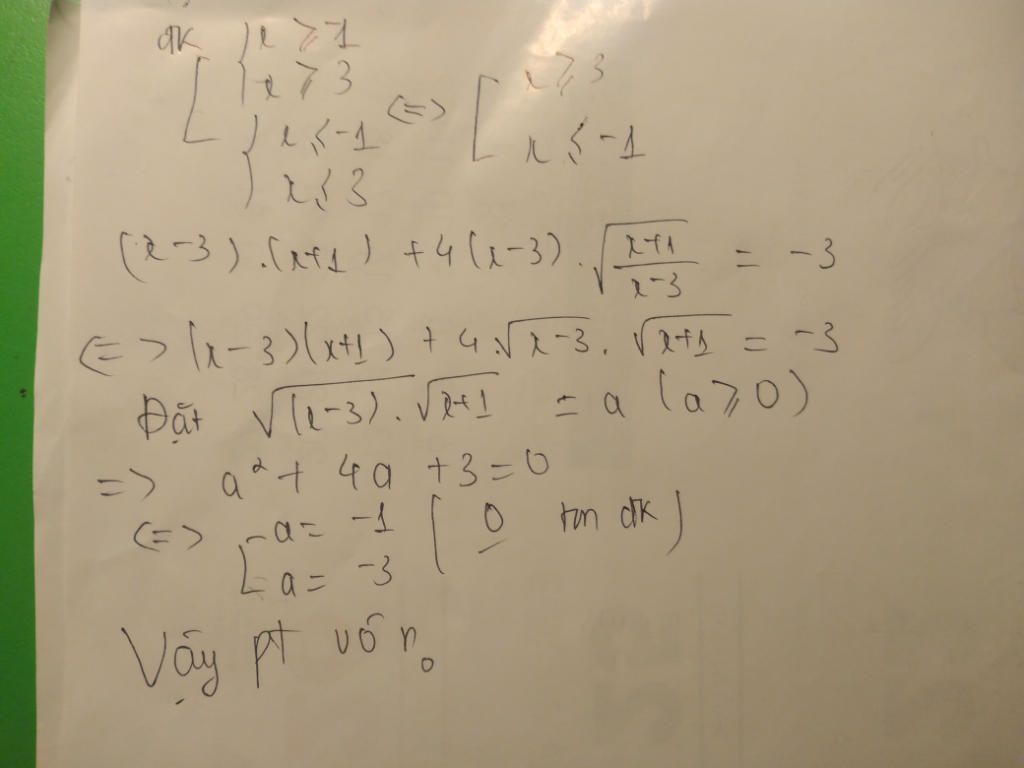 đk [ { x ⩾ -1
x ⩾ 3
{ x ⩽ -1
x ⩽ 3 <=> [ x ⩾ 3
x ⩽ -1
(x-3).(x+1) + 4(x-3).√((x+1)/(x-3)) = -3
<=> (x-3)(x+1) + 4.√(x-3).√(x+1) = -3
Đặt √((x-3)).√(x+1) = a (a ⩾ 0)
=> a² + 4a + 3 = 0
<=> [ a = -1 ( 0 tm đk )
a = -3
Vậy pt vô n₀